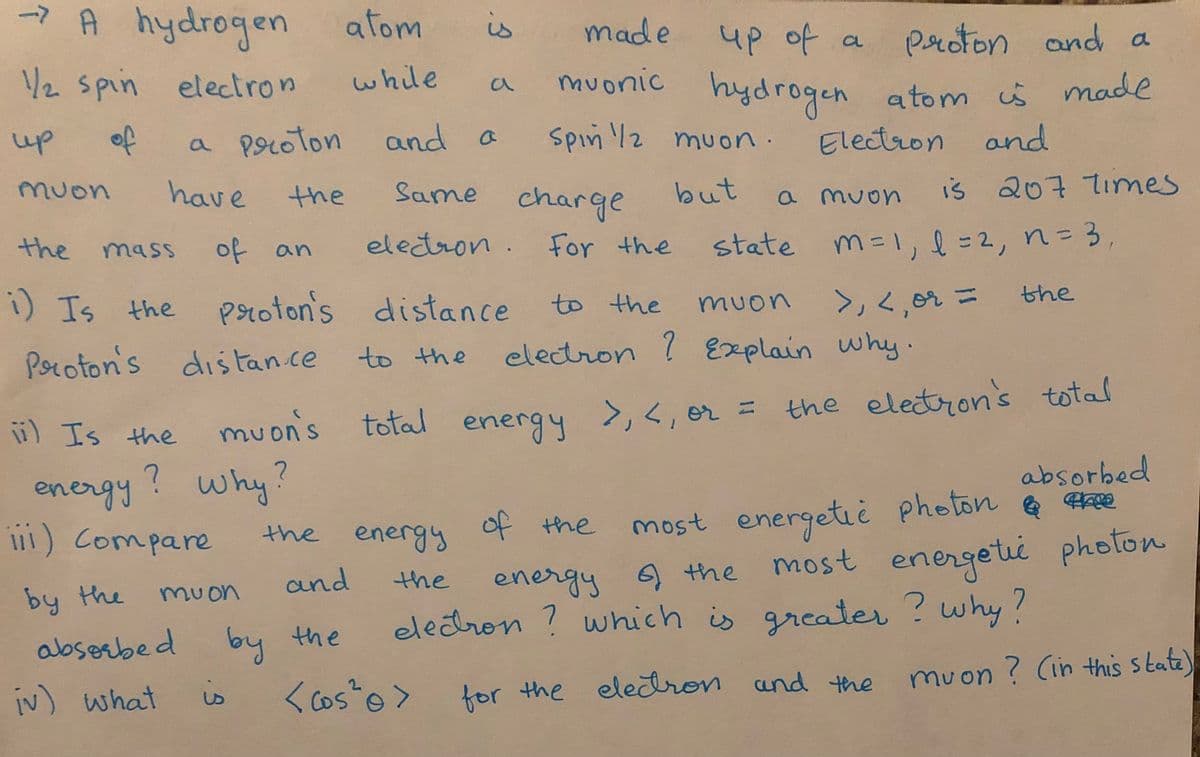 → A hydrogen atom is made up of a proton and a
1/2 spin electron while a muonic hydrogen atom is made
up of a proton and a spin 1/2 muon. Electron and
muon have the Same charge but a muon is 207 Times
the mass of an electron. For the state m=1, l=2, n=3,
i) Is the proton's distance to the muon >, <, or = the
Proton's distance to the electron ? Explain why.
ii) Is the muon's total energy >, <, or = the electron's total
energy ? Why ?
absorbed
iii) Compare the energy of the most energetic photon
by the muon and the energy of the most energetic photon
absorbed by the electron ? which is greater ? why ?
iv) what is <Cos²θ> for the electron and the muon ? (in this state)